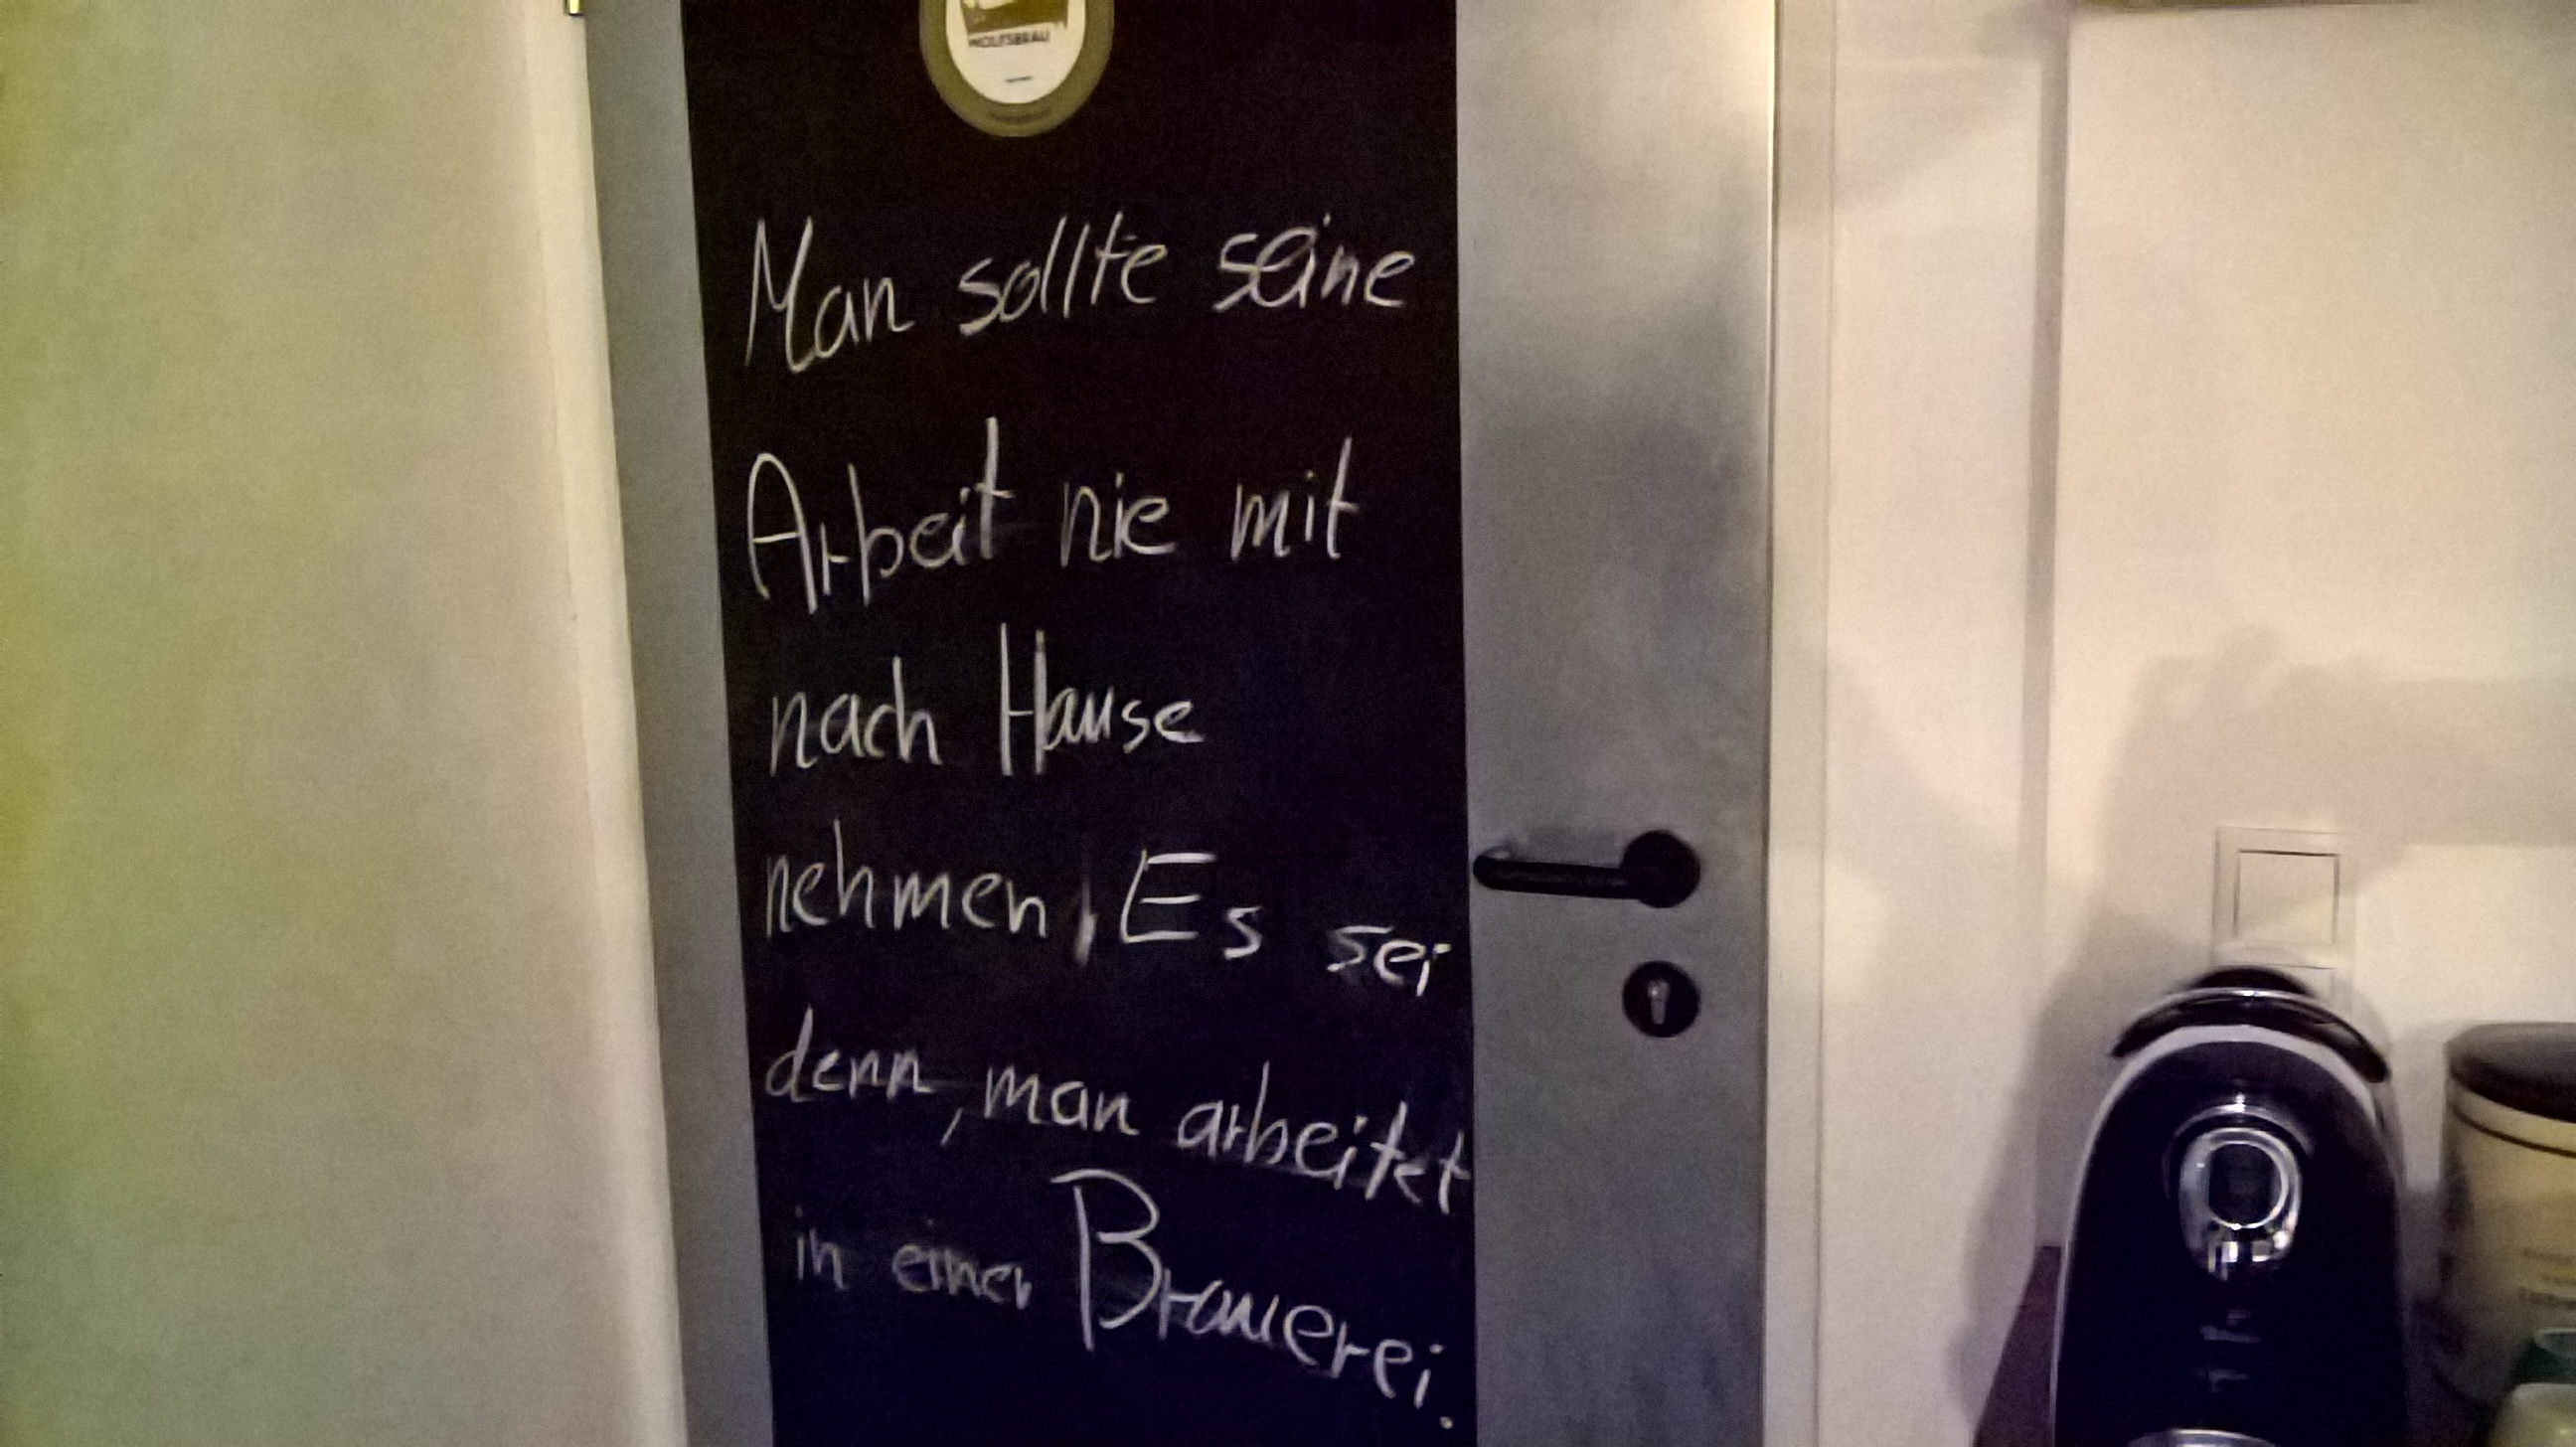 WOLFSBRÄU
Man sollte seine
Arbeit nie mit
nach Hause
nehmen, Es sei
denn, man arbeitet
in einer Brauerei.